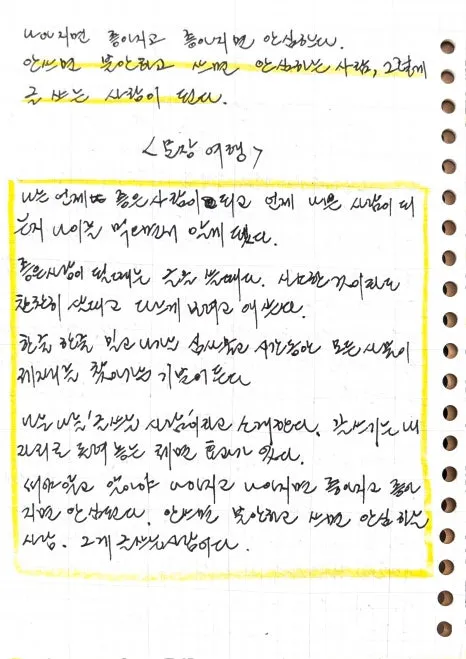 나아지면 좋아지고 좋아지면 안심한다.
안쓰면 불안하고 쓰면 안심하는 사람, 그렇게
글 쓰는 사람이 된다.
<문장 여행>
나는 언제 좋은 사람이 되고 언제 나쁜 사람이 되
는지 나이를 먹으면서 알게 됐다.
좋은 사람이 될 때는 글을 쓸 때다. 사소한 것이라도
찬찬히 살피고 다르게 보려고 애쓴다.
한글 한글 밀고 나가는 시간동안 모든 사물이
제자리를 찾아가는 기분이 든다
나는 나를 '글쓰는 사람'이라고 소개한다. 글쓰기는 내
자리로 돌려 놓는 제법 효과가 있다.
써야 알고 알아야 나아지고 나아지면 좋아지고 좋아
지면 안심된다. 안쓰면 불안하고 쓰면 안심하는
사람. 그게 글쓰는 사람이다.